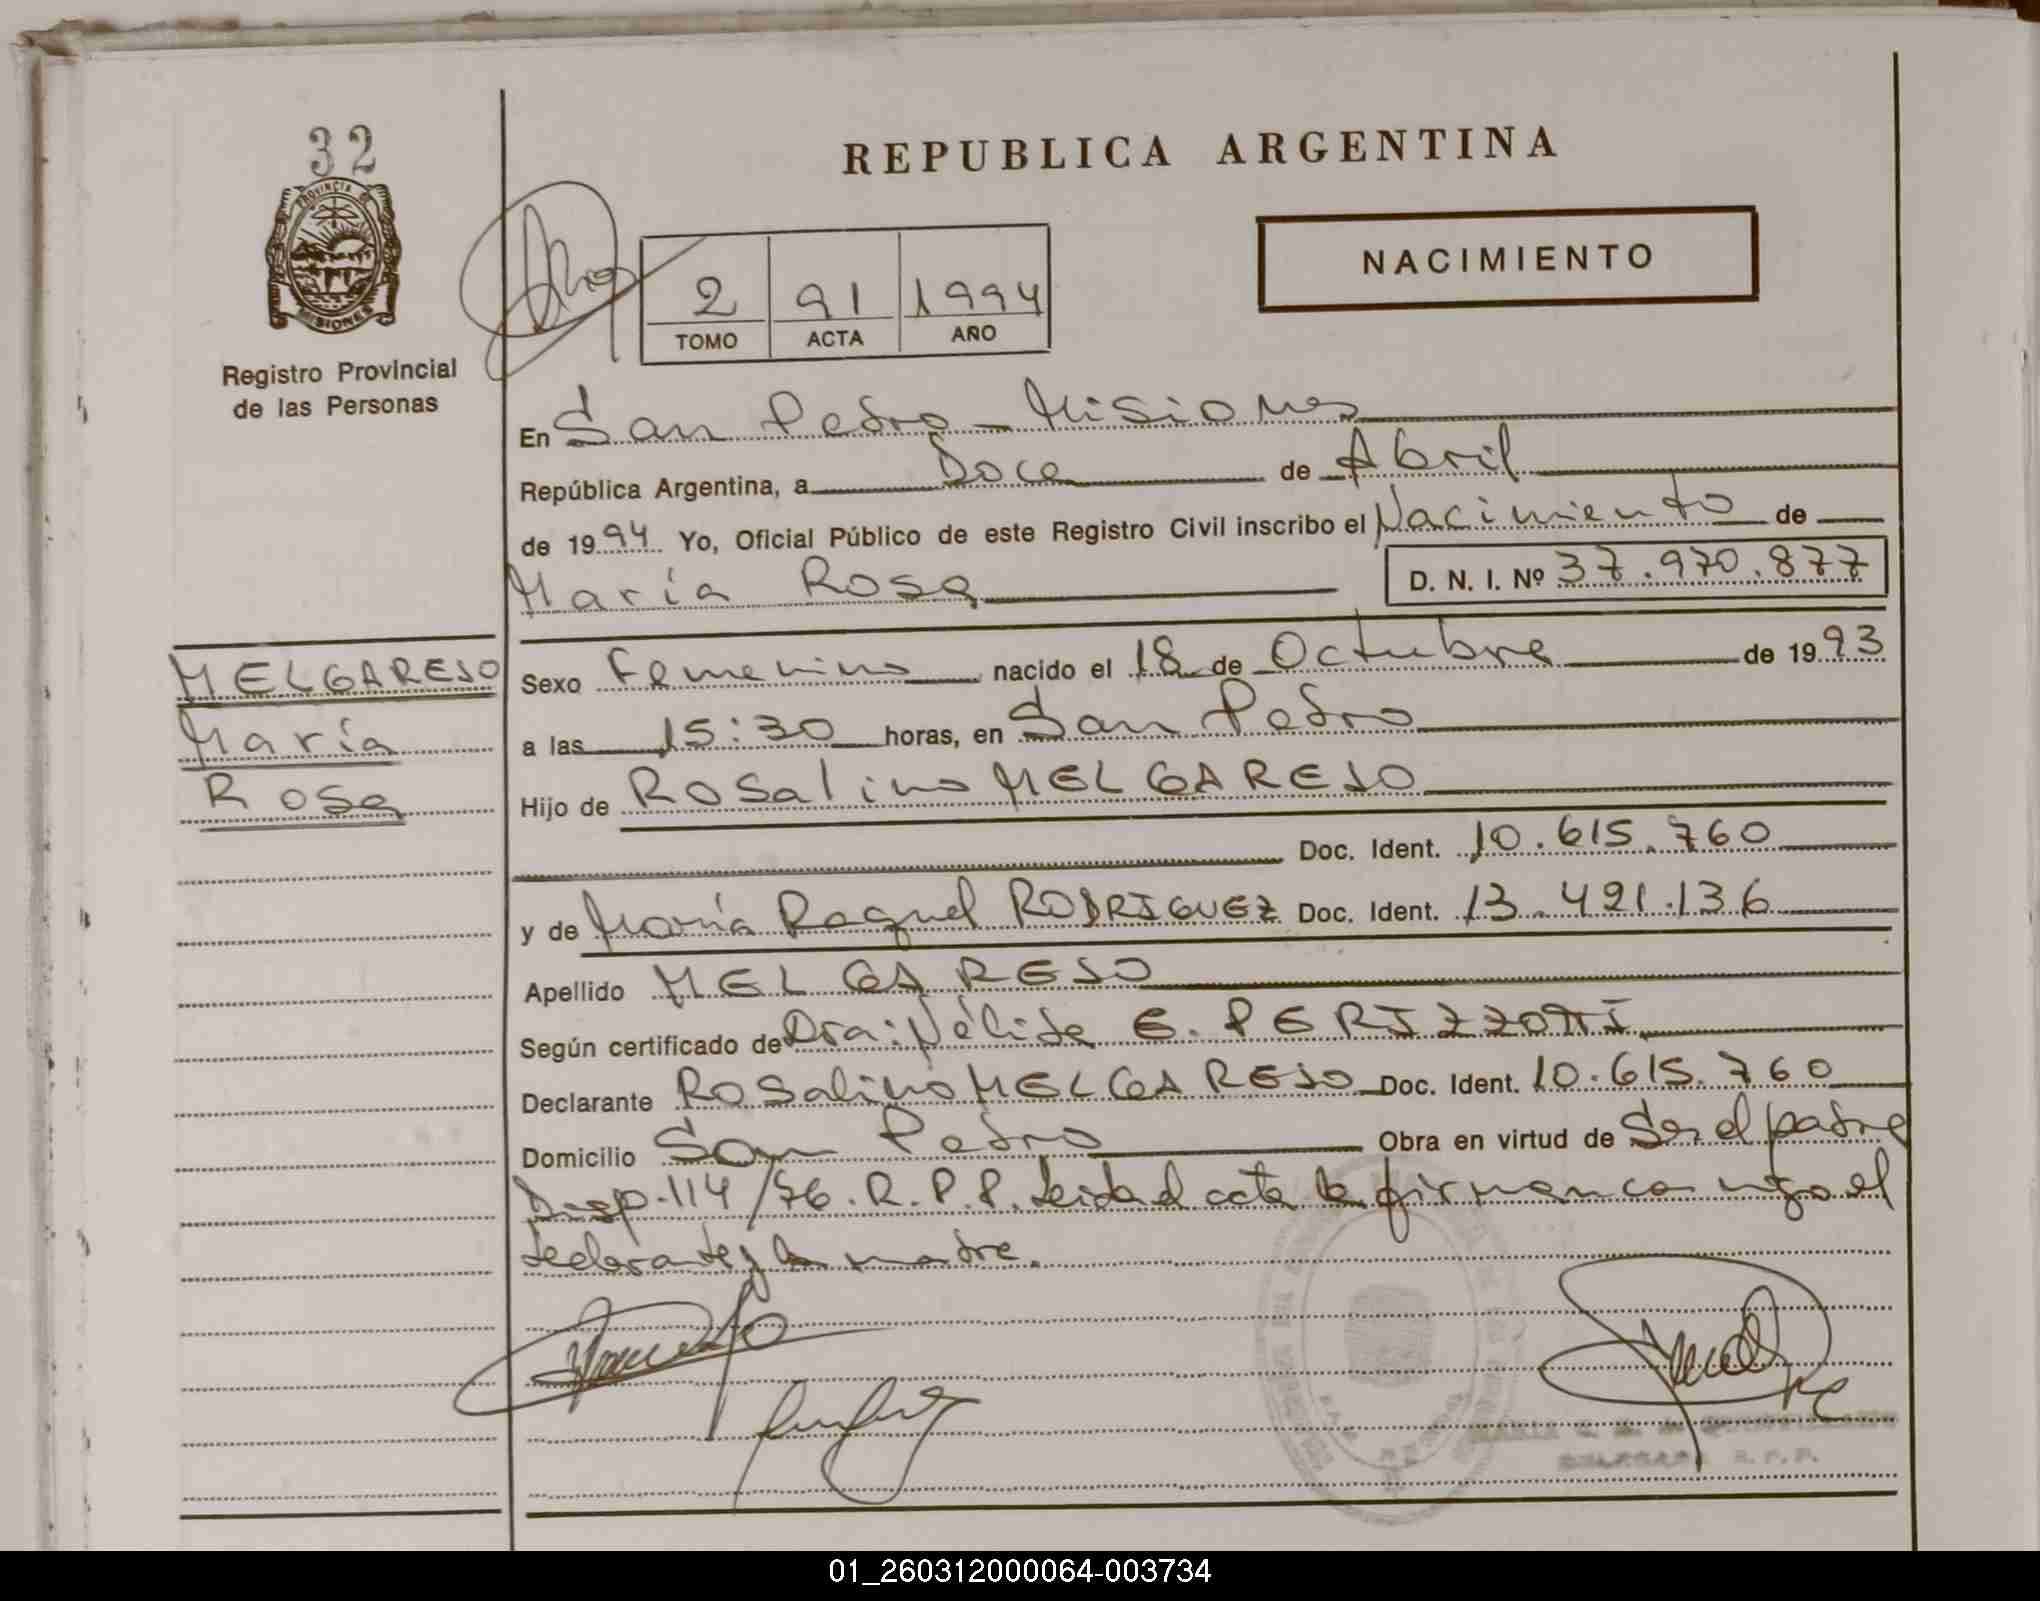 32
PROVINCIA DE
MISIONES
Registro Provincial
de las Personas
REPUBLICA ARGENTINA
NACIMIENTO
2 91 1994
TOMO ACTA AÑO
En San Pedro - Misiones
República Argentina, a Doce de Abril
de 1994 Yo, Oficial Público de este Registro Civil inscribo el Nacimiento de
María Rosa D. N. I. Nº 37.970.877
MELGAREJO
María
Rosa
Sexo Femenino nacido el 18 de Octubre de 1993
a las 15:30 horas, en San Pedro
Hijo de Rosalino MELGAREJO
Doc. Ident. 10.615.760
y de María Raquel RODRIGUEZ Doc. Ident. 13.421.136
Apellido MELGAREJO
Según certificado de Dra: Nélida E. PERIZZOTTI
Declarante Rosalino MELGAREJO Doc. Ident. 10.615.760
Domicilio San Pedro Obra en virtud de Ser el padre
Disp. 114/76. R.P.P. Leida el acta la firman conmigo el
declarante y la madre.
R.P.P.
01_260312000064-003734